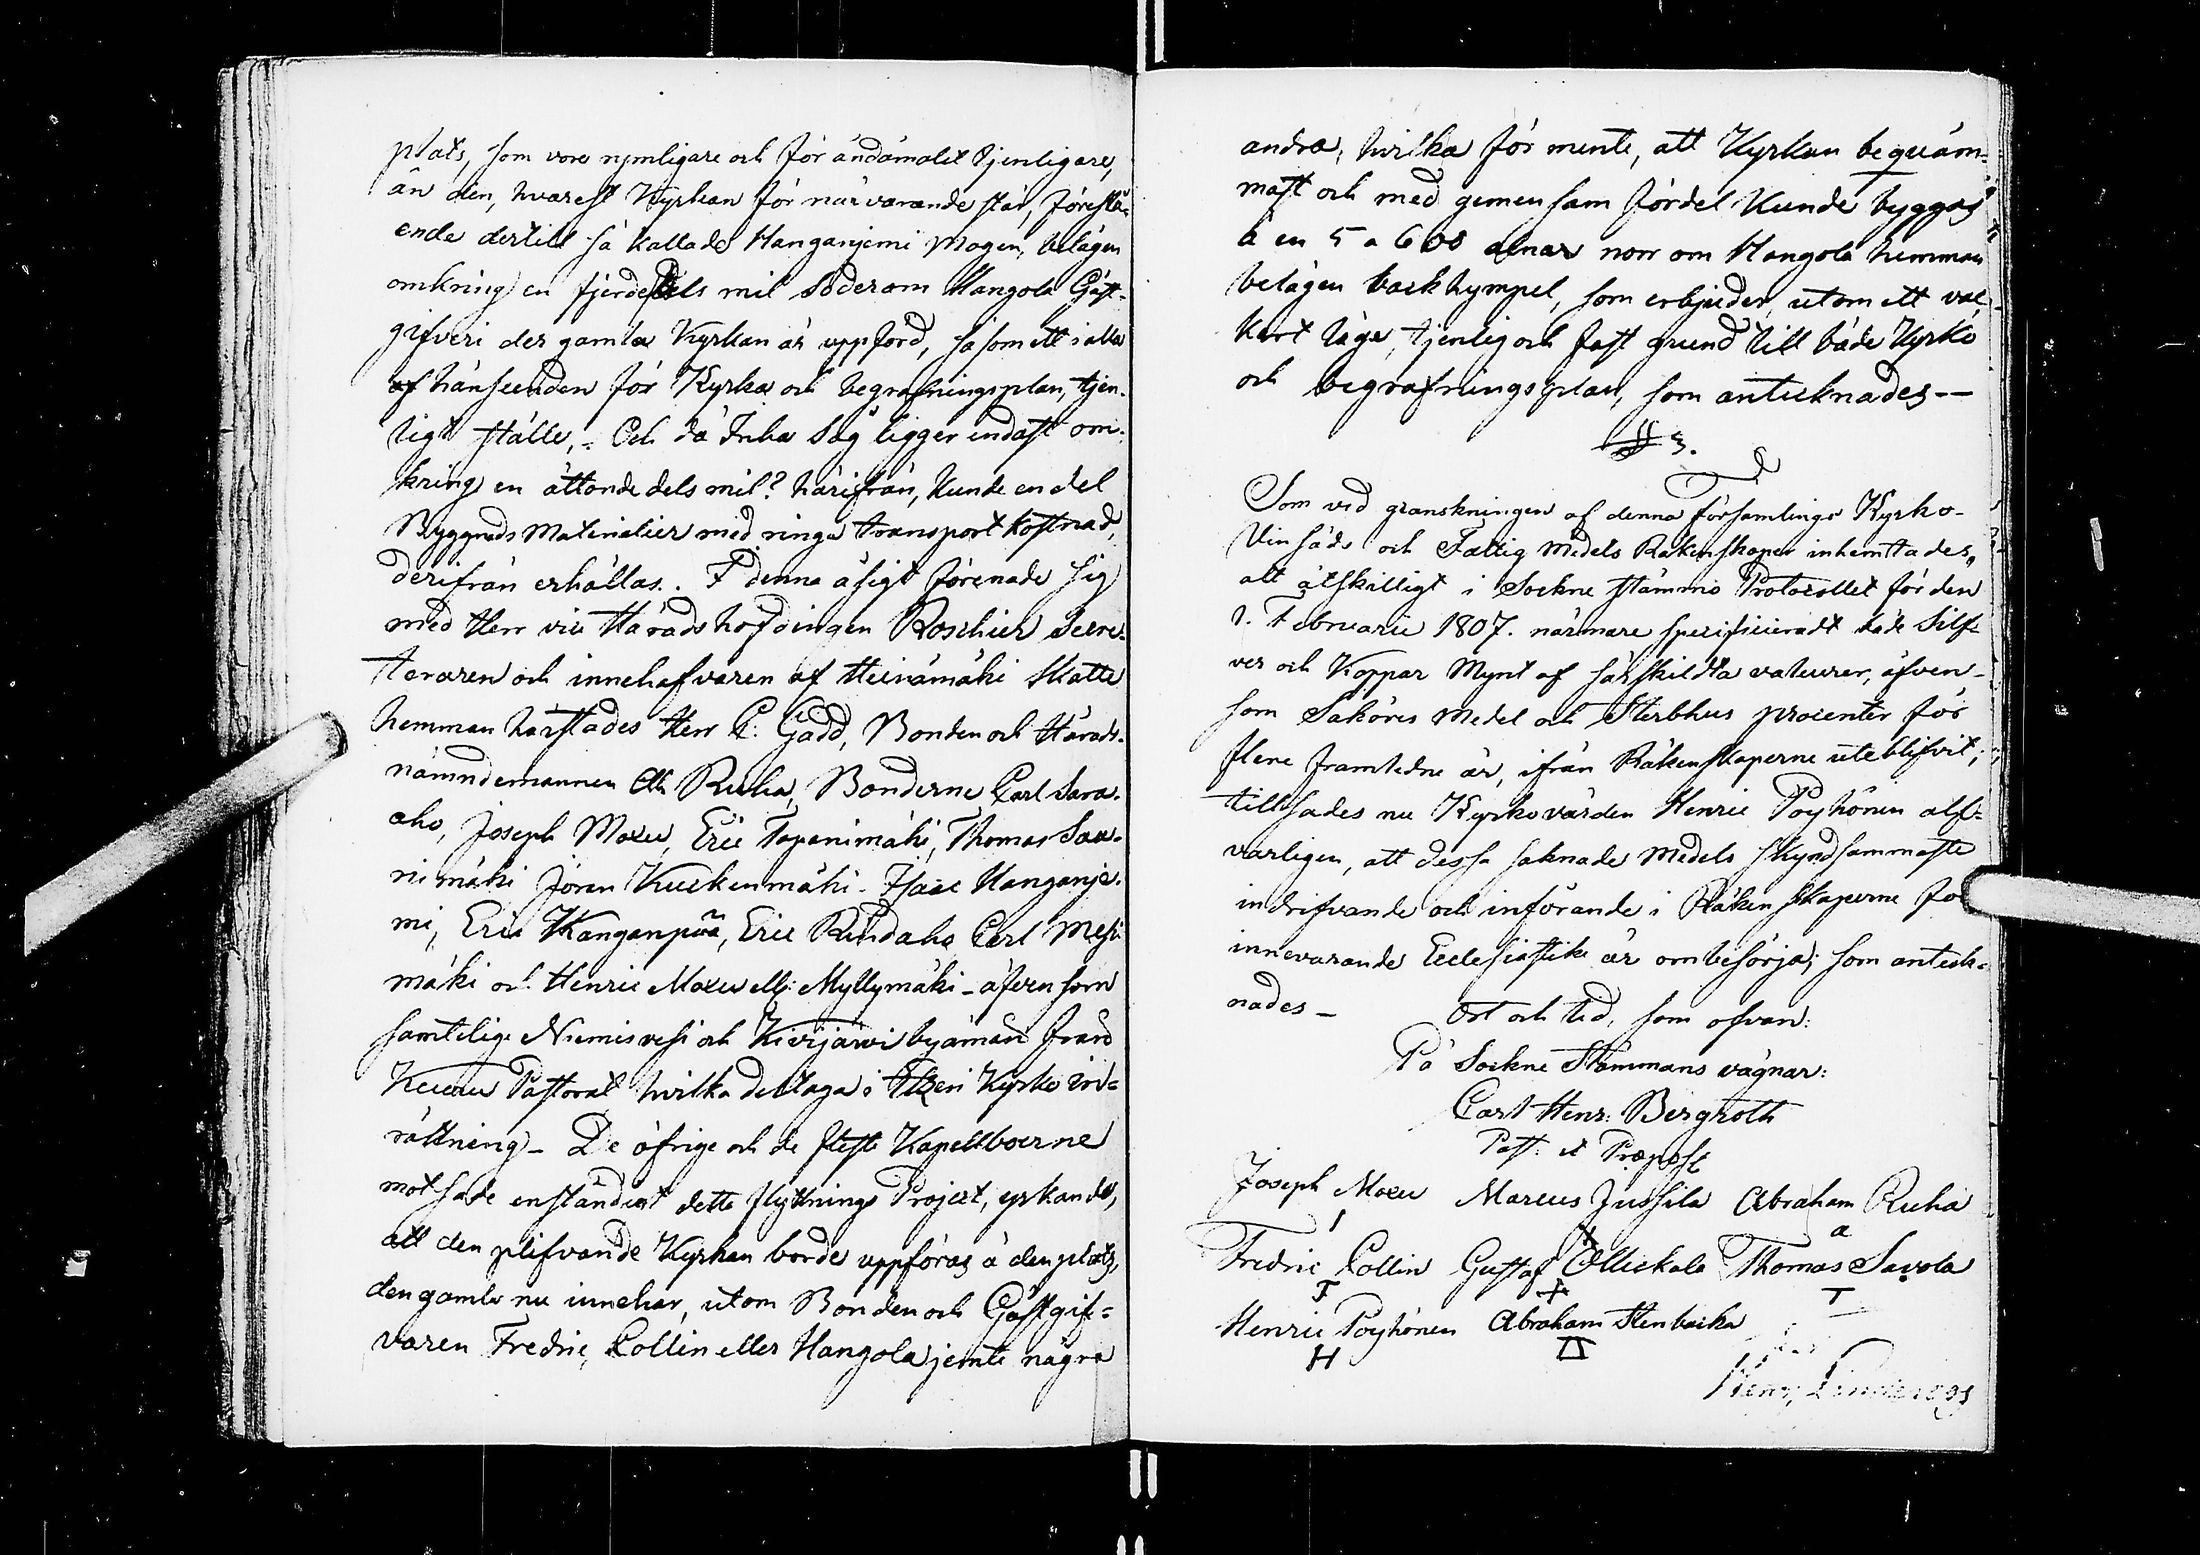 plats, som vore rymligare och för ändamålet tjenligare,
än den, hvarest Kyrkan för närvarande står, föreslå-
ende dertill så kallade Hanganjemi Mogen, belägen
omkring en fjerdedels mil söder om Hangola Gäst-
gifveri der gamla Kyrkan är uppförd, såsom ett i alla
hänseenden för Kyrka och begrafningsplan, tjen-
ligt ställe, - Och då Inha Såg ligger endast om-
kring en åttondedels mil? härifrån, kunde en del
Byggnads Materialier med ringa transport kostnad,
derifrån erhållas. I denna åsigt förenade sig
med Herr vice Häradshöfdingen Roschier Secre-
teraren och innehafvaren af Heinämäki Skatte
hemman härstädes Herr C. Gadd, Bonden och Härads-
nämndemannen Ruha, Bönderne Carl Sara-
aho, Joseph Moxu, Eric Tapanimäki, Thomas Saa-
rimäki Jöran Kuckenmäki - Isaac Hanganje-
mi, Eric Kanganpää, Eric Rindaho Carl Mesi-
mäki och Henric Moxu ell: Myllymäki - äfvensom
samtelige Niemisvesi och Kivijärvi byamän från
Kuuru Pastorat hvilka deltaga i Etzeri Kyrko in-
rättning - De öfrige och de fleste Kapellboerne
motsade enständigt detta flyttnings Project, yrkande,
att den blifvande Kyrkan borde uppföras å den plats,
den gamla nu innehar, utom Bonden och Gästgif-
varen Fredric Collin eller Hangola jemte några
andra, hvilka förmente, att Kyrkan beqväm-
mast och med gemensam fördel kunde byggas
å en 5 a 600 alnar norr om Hangola hemman
belägen backhympel, som erbjuder, utom ett vac-
kert läge, tjenlig och fast grund till både Kyrko
och begrafningsplan, som antecknades --
§ 3.
Som vid granskningen af denna Församlings Kyrko-
Vinsäds och Fattig Medels Räkenskaper inhemtades,
att åtskilligt i Sockne stämmo Protocollet för den
1. Februarii 1807. närmare specificieradt både Silf-
ver och Koppar Mynt af särskildta valeurer, äfven-
som Saköres Medel och Sterbhus procenter för
flere framledne år, ifrån Räkenskaperne uteblifvit;
tillsades nu Kyrkovärden Henric Pöyhönen alf-
varligen, att dessa saknade Medels skyndsammaste
indrifvande och införande i Räkenskaperne för
innevarande Ecclesiastike år ombesörja; som anteck-
nades - Ort och tid, som ofvan:
På Sockne Stämmans vägnar:
Carl Henr: Bergroth
Past: et Præpost
Joseph Moxu Marcus Jussila Abraham Ruha
Fredric Collin Gustaf Ollickala Thomas Savola
Henric Pöyhönen Abraham Stenbacka
H